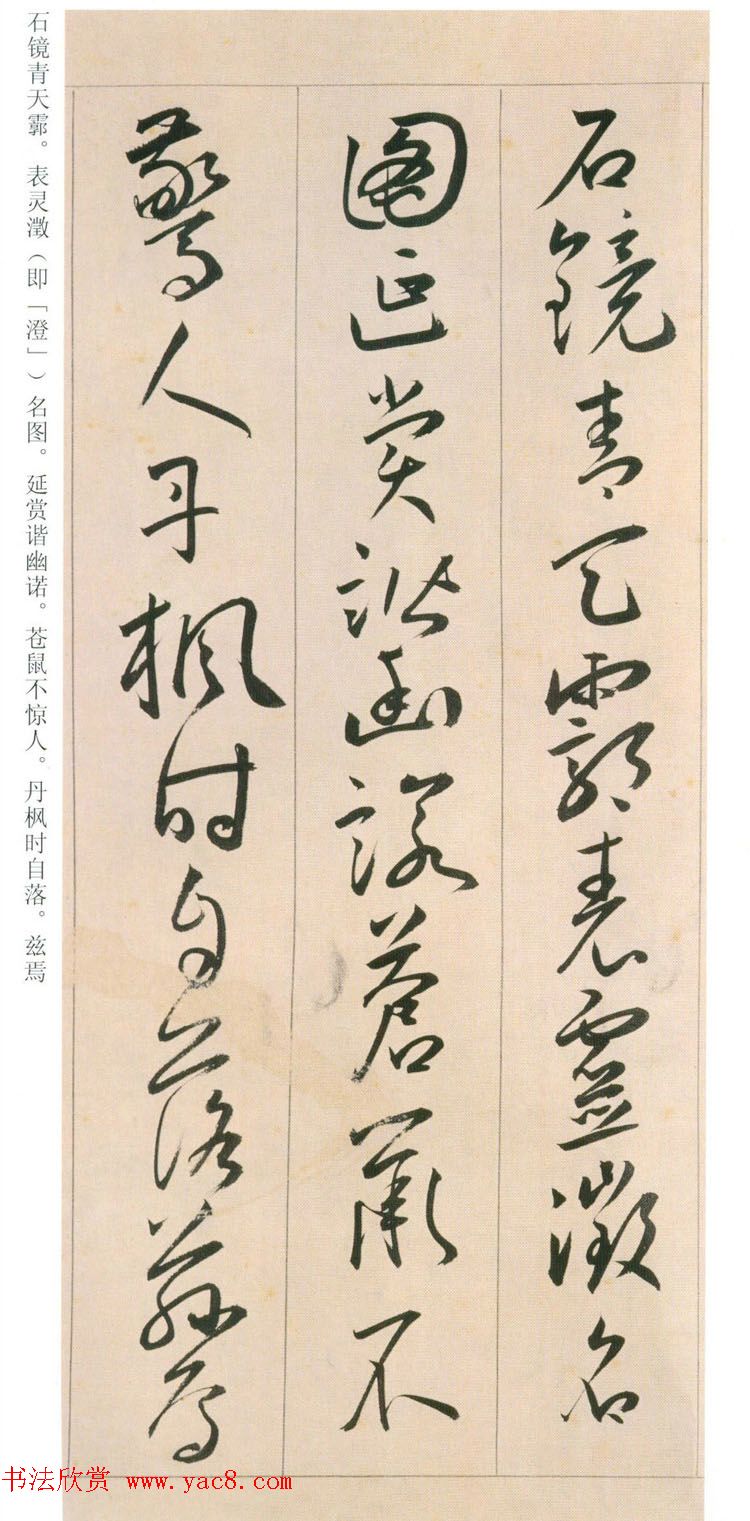 石鏡青天霸表靈澂名
圖延赏諧幽諾蒼鼠不
驚人丹楓時自落茲焉
石镜青天霏。表灵澂（即「澄」）名图。延赏谐幽诺。苍鼠不惊人。丹枫时自落。兹焉
书法欣赏 www.yac8.com